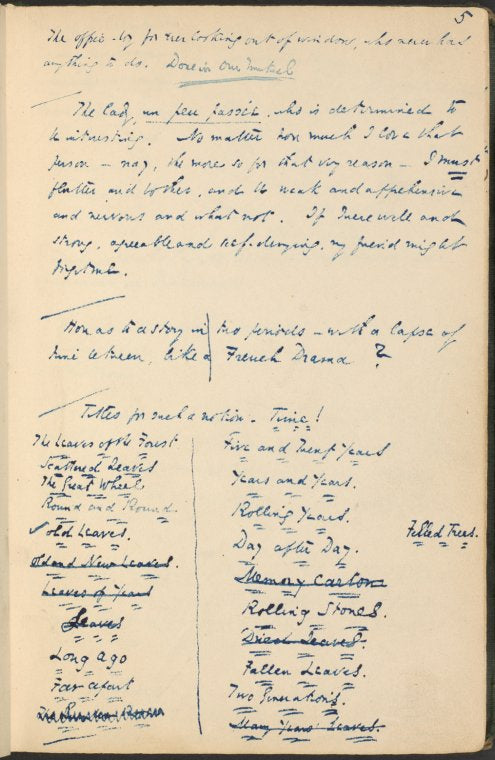 5
The office-boy for ever looking out of window, who never has
anything to do. Done in Our Mutual
The lady, un peu passée, who is determined to
be interesting. No matter how much I love that
person – nay, the more so for that very reason – I must
flatter and bother, and be weak and apprehensive
and nervous and what not. If I were well and
strong, agreeable and self-denying, my friend might
forget me.
How as to a story in two periods – with a lapse of
time between, like a French Drama?
Titles for such a notion. Time!
The Leaves of the Forest
Scattered Leaves
The Great Wheel
Round and Round.
Old Leaves.
Old and New Leaves.
Leaves of Years
Leaves
Long ago
Far apart
Five and Twenty Years
Years and Years.
Rolling Years.
Day after Day.
Felled Trees.
Memory Carton
Rolling Stones.
Dried Leaves.
Fallen Leaves.
Two Generations.
Many Years' Leaves.